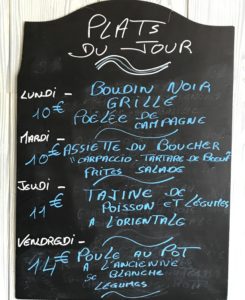 PLATS
DU JOUR
LUNDI - BOUDIN NOIR
10€ GRILLÉ
POÊLÉE DE
CAMPAGNE
MARDI -
10€ ASSIETTE DU BOUCHER
"CARPACCIO - TARTARE DE BOEUF"
FRITES SALADE
JEUDI - TAJINE DE
11€ POISSON ET LÉGUMES
A L'ORIENTALE
VENDREDI -
14€ POULE AU POT
A L'ANCIENNE
BLANCHE
LÉGUMES